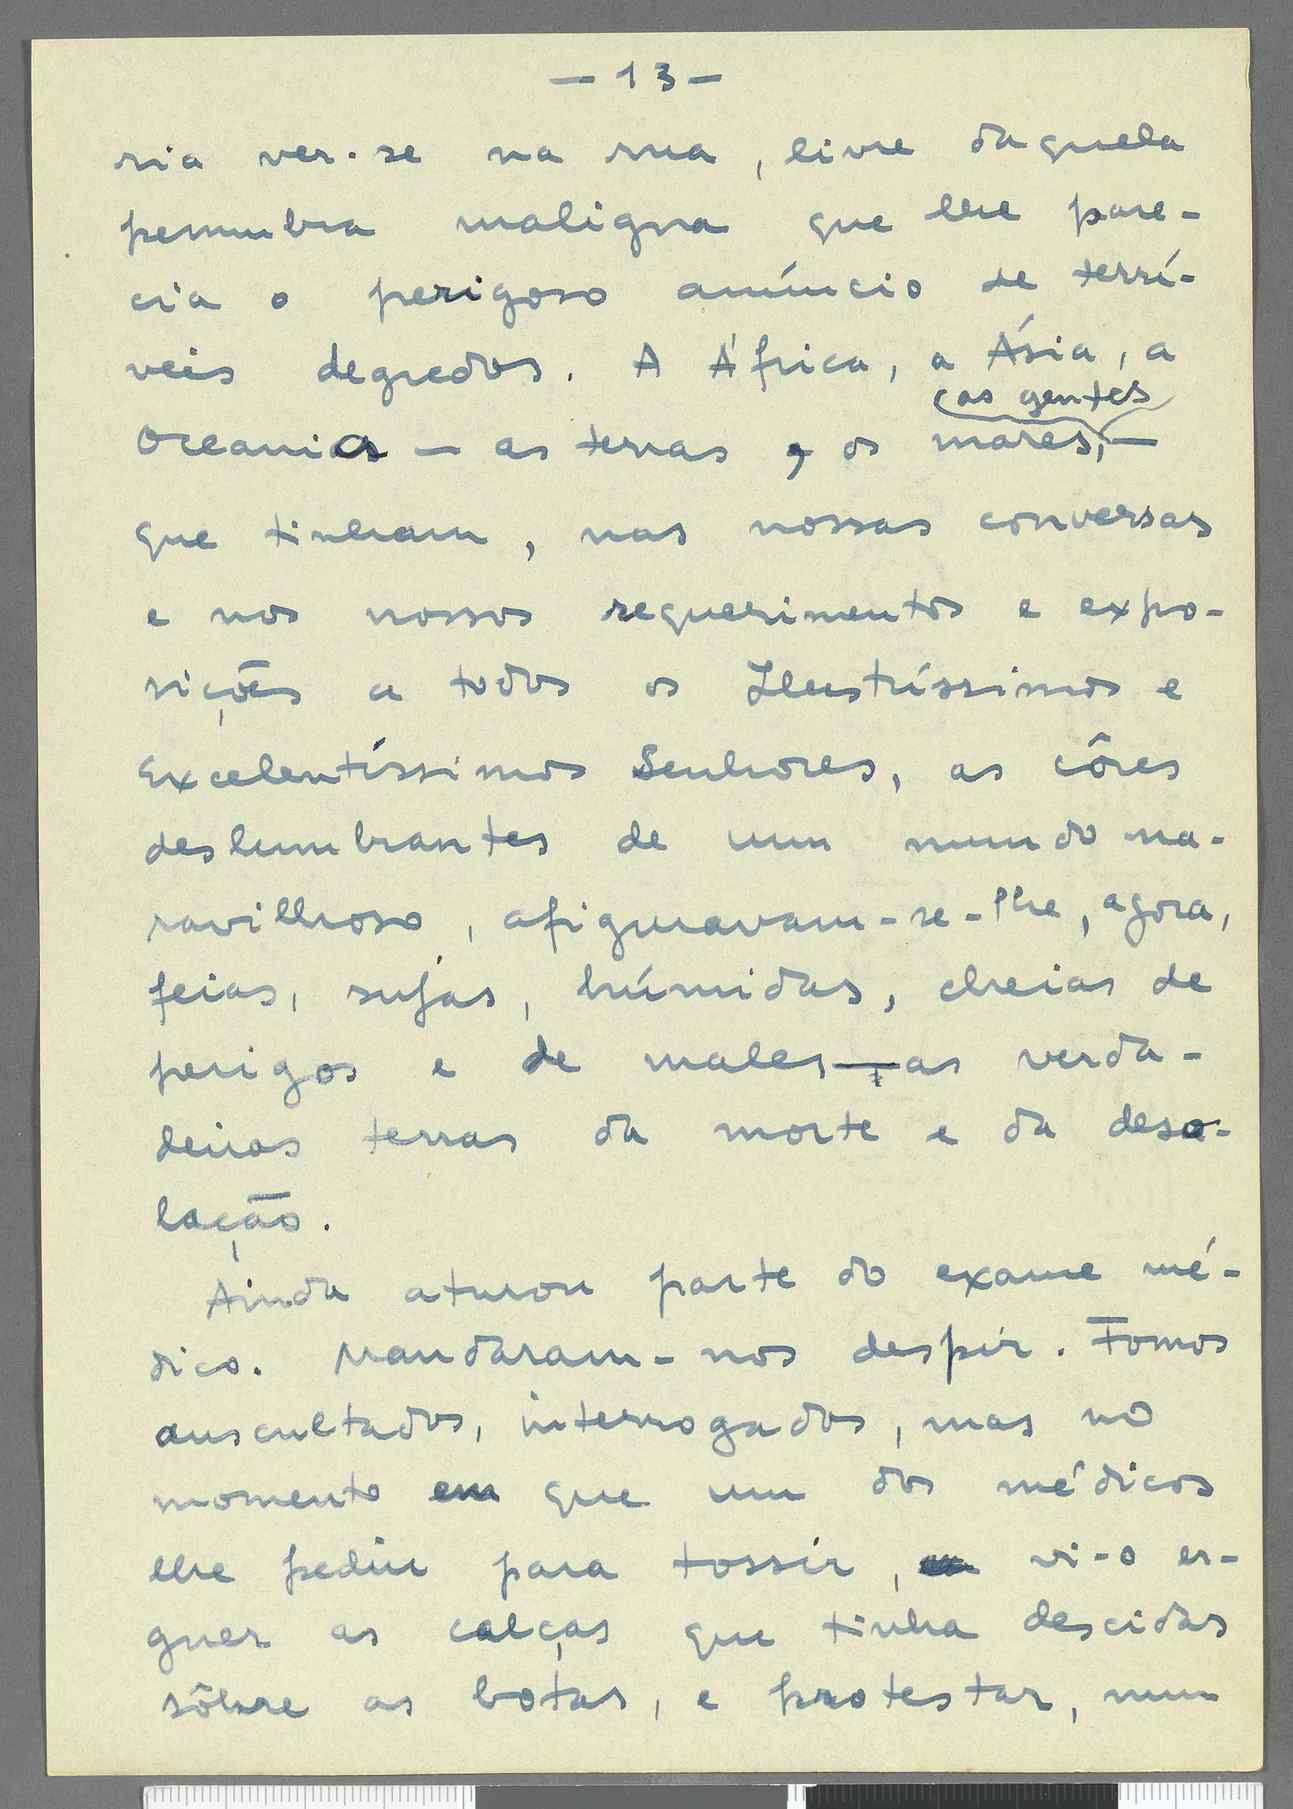 — 13 —
ria ver-se na rua, livre daquela
penumbra maligna que lhe pare-
cia o perigoso anúncio de terrí-
veis degredos. A África, a Ásia, a
e as gentes
Oceania — as terras, os mares, —
que tinham, nas nossas conversas
e nos nossos requerimentos e expo-
sições a todos os Ilustríssimos e
Excelentíssimos Senhores, as côres
deslumbrantes de um mundo ma-
ravilhoso, afiguravam-se-lhe, agora,
feias, sujas, húmidas, cheias de
perigos e de males — as verda-
deiras terras da morte e da deso-
lação.
Ainda aturou parte do exame mé-
dico. Mandaram-nos despir. Fomos
auscultados, interrogados, mas no
momento em que um dos médicos
lhe pediu para tossir, vi-o er-
guer as calças que tinha descidas
sôbre as botas, e protestar, num